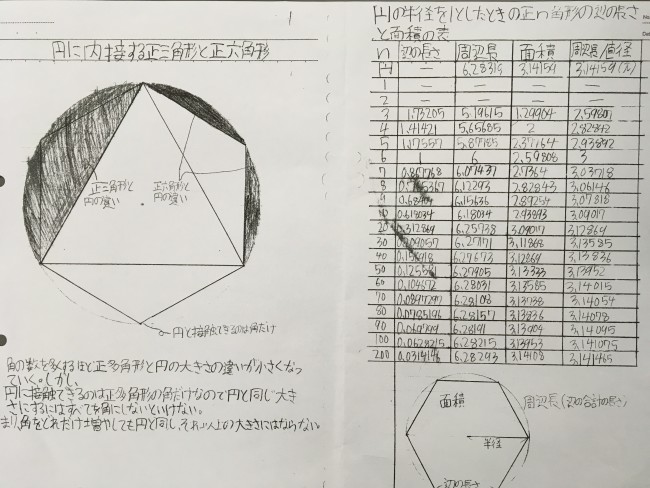 1
円に内接する正三角形と正六角形
正三角形と
円の違い
正六角形と
円の違い
円と接触できるのは角だけ
角の数を多くするほど正多角形と円の大きさの違いが小さくなっ
ていく。しかし
円に接触できるのは正多角形の角だけなので円と同じ大き
さにするにはすべてを角にしないといけない。
まり、角をどれだけ増やしても円と同じ、それ以上の大きさにはならない。
円の半径を1としたときの正n角形の辺の長さ
と面積の表
n 辺の長さ 周辺長 面積 周辺長/直径
円 — 6.28319 3.14159 3.14159(π)
1 — — — —
2 — — — —
3 1.73205 5.19615 1.29904 2.59807
4 1.41421 5.65685 2 2.82842
5 1.17557 5.87785 2.37764 2.93892
6 6 2.59808 3
7 6.07437 2.73641 3.03718
8 6.12293 2.82843 3.06146
9 6.15636 2.89254 3.07818
10 0.618034 6.18034 2.93893 3.09017
20 0.312869 6.25738 3.09017 3.12869
30 0.209057 6.27171 3.11868 3.13585
40 0.156918 6.27673 3.12869 3.13836
50 0.125581 6.27905 3.13333 3.13952
60 0.104672 6.28031 3.13585 3.14015
70 0.0897297 6.28108 3.13738 3.14054
80 0.0785196 6.28157 3.13836 3.14078
90 6.28191 3.13904 3.14095
100 0.0628215 6.28215 3.13953 3.141075
200 0.0314146 6.28293 3.14108 3.141465
面積
周辺長(辺の合計の長さ)
半径
辺の長さ